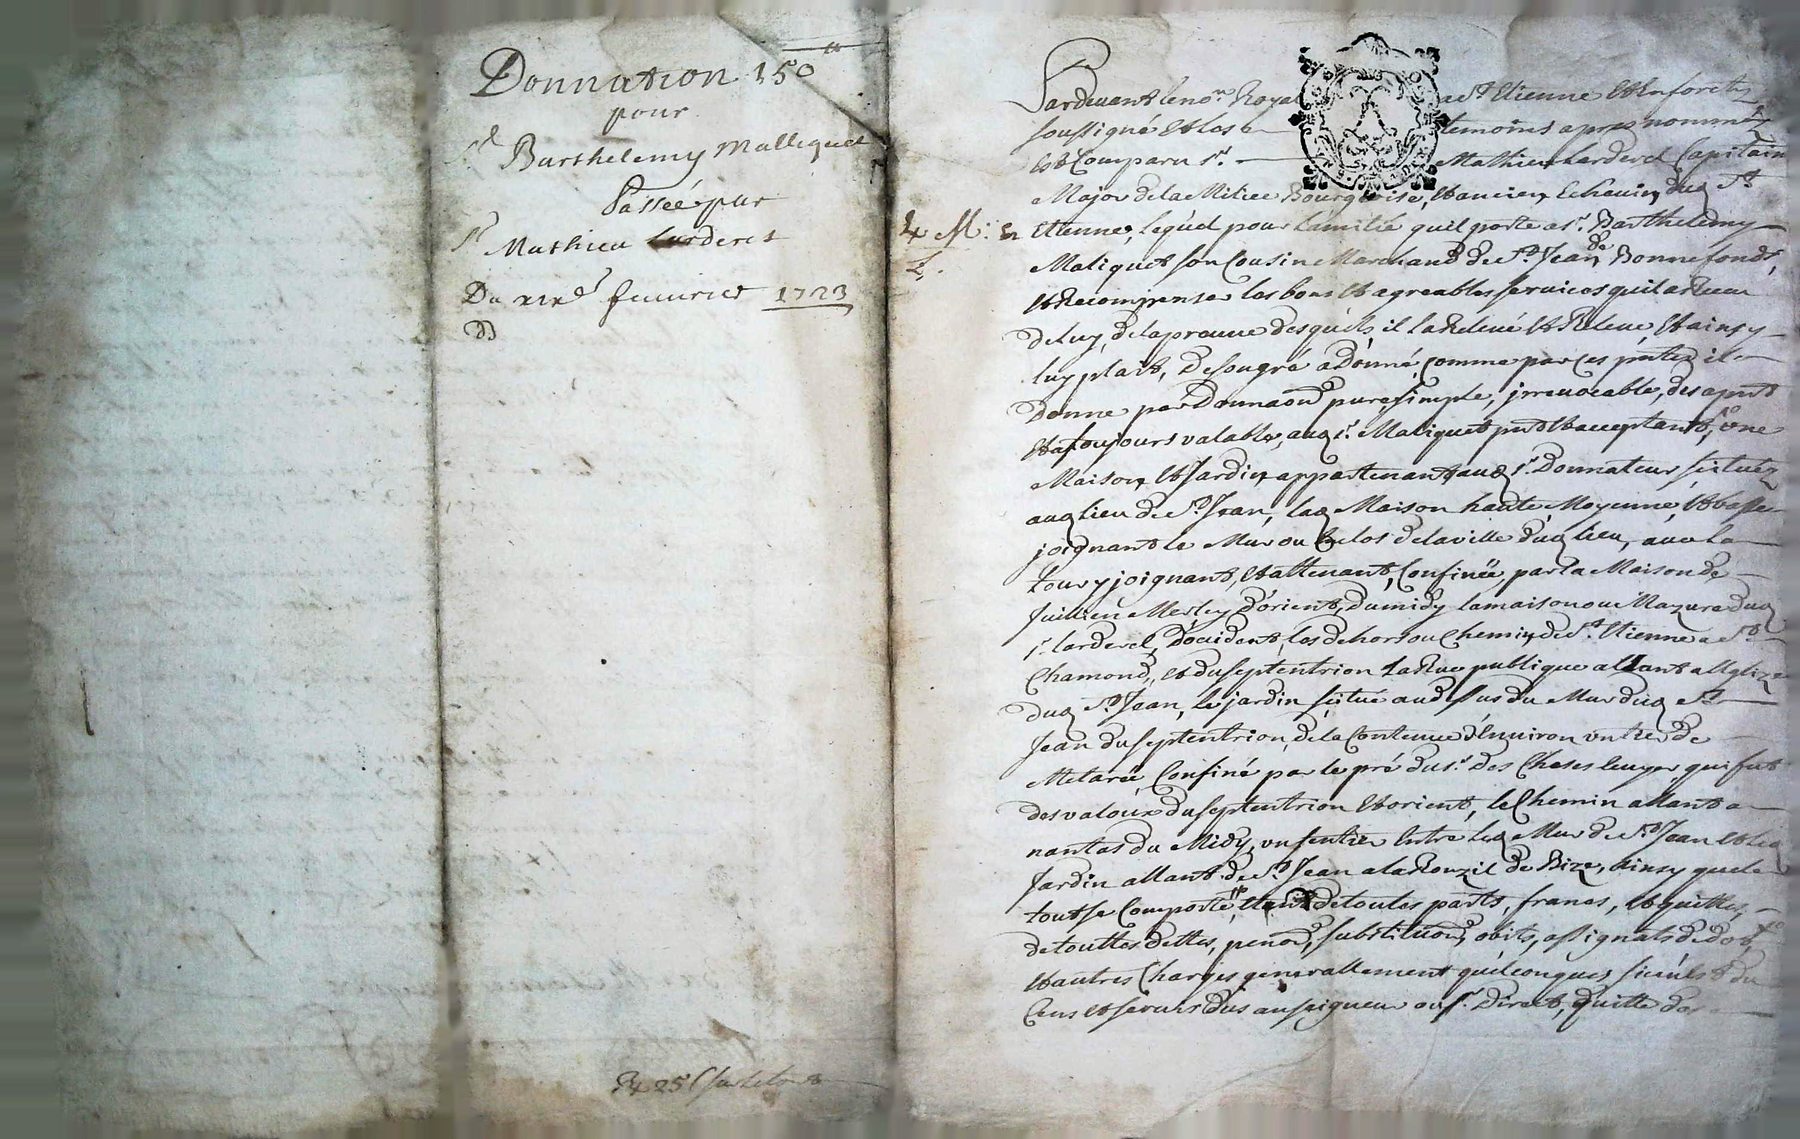 Donnation 150ᵗᵗ
pour
Sʳ Barthelemy Malliquet
Passée par
Sʳ Mathieu Larderet
Du xixᵉ feuurier 1723
Pardeuant le noʳᵉ Royal a Sᵗ Etienne Et En foretz
soussigné Et les temoins apres nommés
Est Comparu sʳ. Mathieu Larderet Capitaine
Major de la Milice Bourgeoise, Et ancien Echeuin duq Sᵗ
Etienne, lequel pour lamitié quil porte a sʳ. Barthelemy
Maliquet son Cousin Marchand de Sᵗ Jean de Bonnefonds,
Et Recompenser les bons Et agreables seruices quil a Receu
de luy, de la preuue desquels, il la Releué Et Releue, Et ainsy
luy plait, De son gré a Donné, comme par ces pntes il
Donne par Donnaōn pure, simple, jrreuocable, des apnt
Et a toujours valable, auq sʳ. Maliquet pnt Et acceptant, vne
Maison, Et Jardin appartenant aud sʳ. Donnateur scitués
auq lieu de Sᵗ Jean, laq Maison haute Moyenne, Et basse
joignant le Mur ou Enclos de la ville duq lieu, auec la
tour y joignant, Et attenant, Confinée, par la Maison de
Jullien Merley d'orient, du midy la maison ou Mazure duq
sʳ. larderet, D'occident, les dehors ou Chemin de Sᵗ Etienne a Sᵗ
Chamond, et du septentrion la Rue publique allant a lEglize
duq Sᵗ Jean, le jardin scitué au dessus du Mur duq Sᵗ
Jean du septentrion, de la Contenue d'Enuiron vn tier de
Meterée Confiné par le pré du sʳ. Des Cheses qui fut
des valoux du septentrion Et orient, le Chemin allant a
nantas du Midy, vn sentier Entre leq Mur de Sᵗ Jean Et leq
Jardin allant de Sᵗ Jean a la de Bize, Ainsy que le
tout se Comporte, de toutes parts, francs, Et quittes,
de touttes dettes, penōns, substitutiōns, obits, assignats de dot,
Et autres Charges generallement quelconques du
Cens Et seruis dus au seigneur ou sʳ. Direct, quitte des